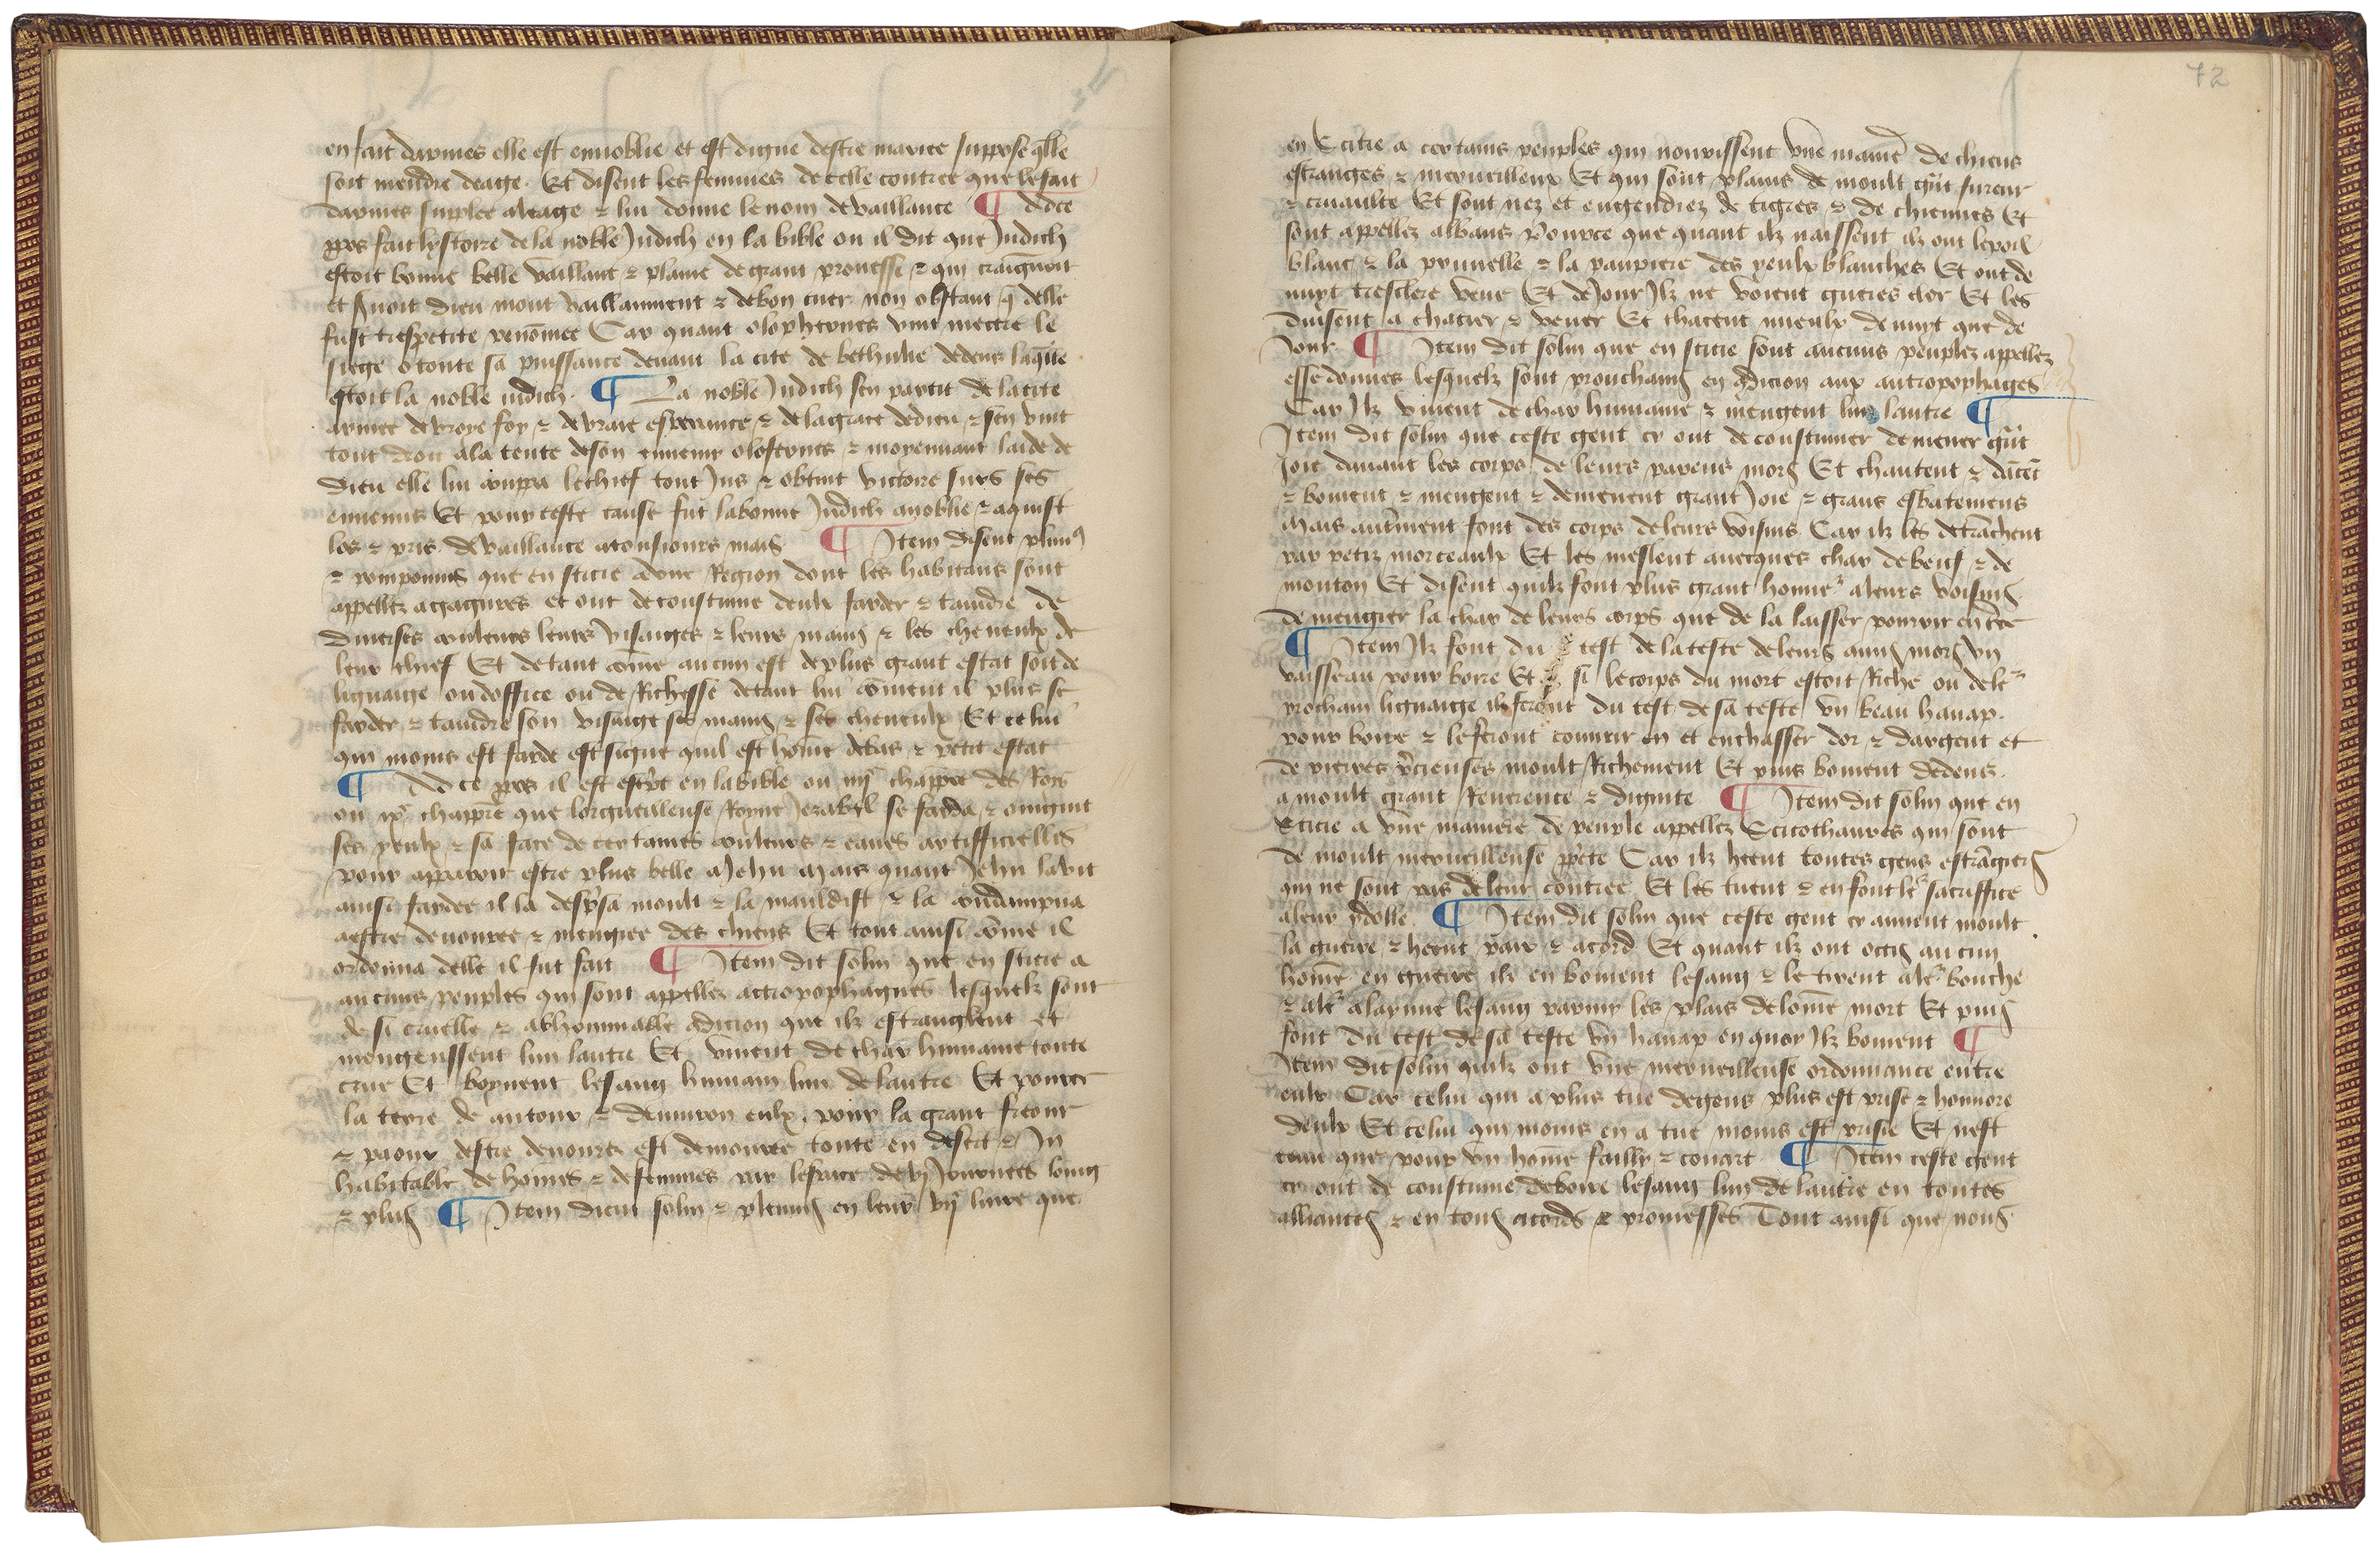 en fait darmes elle est ennoblie et est digne destre mariee suppose qlle
soit mendre deage. Et disent les femmes de celle contree que le fait
darmes supplee aleage ⁊ lui donne le nom de vaillance ¶ Ad ce
ppos fait lystoire de la noble Judich en la bible ou il dit que Judich
estoit bonne belle vaillant ⁊ plaine de grant prouesse ⁊ qui craignoit
et dieu mont vaillamment ⁊ de bon cuer non obstant q̄ delle
fust trespetite renōmee Car quant olophernes vint mectre le
siege o toute sa puissance deuant la cite de bethulie dedens laq̄lle
estoit la noble iudich. ¶ La noble Judich sen partit de la cite
armee de vroye foy ⁊ de vraie esperance ⁊ de la grace de dieu ⁊ sen vint
tout droit a la tente de son ennemy olofernes ⁊ moyennant laide de
dieu elle lui couppa le chief tout Jus ⁊ obtint victoire surs ses
ennemis Et pour ceste cause fut la bonne Judich anoblie ⁊ aquist
los ⁊ pris de vaillance a tousiours mais ¶ Item disent plini9
⁊ pomponius que en sticie a vne Region dont les habitans sont
appellez agagures et ont de coustume deulx farder ⁊ taindre de
diuerses couleurs leurs visaiges ⁊ leurs mains ⁊ les cheueulx de
leur chief Et de tant cōme aucun est de plus grant estat soit de
lignaige ou doffice ou de Richesse de tant lui cōuient il plus se
farder ⁊ taindre son visaige ses mains ⁊ ses cheueulx Et celui
qui moins est farde est signe quil est hōme de bas ⁊ petit estat
¶ Ad ce ppos il est escript en la bible ou iiije chappitre des Rois
ou ixe chappitre que lorgueilleuse Royne Jezabel se farda ⁊ oingnit
ses yeulx ⁊ sa face de certaines couleurs ⁊ eaues artifficielles
pour apparoir estre plus belle a Jehu Mais quant Jehu la vit
ainsi fardee il la desprisa moult ⁊ la mauldist ⁊ la condampna
a estre deuouree ⁊ mengiee des chiens Et tout ainsi cōme il
ordonna delle il fut fait ¶ Item dit solin que en sticie a
aucuns peuples qui sont appellez actropophagues lesquelz sont
de si cruelle ⁊ abhominable 9dicion que ilz estranglent et
mengeussent lun lautre Et viuent de char humaine toute
crue Et boyuent le sang humain lun de lautre Et pource
la terre de autour ⁊ denuiron eulx. pour la grant freour
⁊ paour destre deuourez est demouree toute en desert ⁊ In
habitable de hōmes ⁊ de femmes par lespace de vj Journees long
⁊ plus ¶ Item dient solin ⁊ plenius en leur vije liure que
72
en Scitie a certains peuples qui nourrissent vne maniē de chiens
estranges ⁊ merueilleux Et qui sont plains de moult gn̄t fureur
⁊ cruaulte Et sont nez et engendrez de tigres ⁊ de chiennes Et
sont appellez albans Pource que quant ilz naissent ilz ont le poil
blanc ⁊ la prunelle ⁊ la paupiere des yeulx blanches Et ont de
nuyt tresclere veue Et de Jour Ilz ne voient gueres cler Et les
duisent a chacier ⁊ vener Et chacent mieulx de nuyt que de
Jour ¶ Item dit solin que en sticie sont aucuns peuplez appellez
essedonnes lesquelz sont prouchains en 9dicion aux antropophages
Car Ilz viuent de char humaine ⁊ mengent lun lautre ¶
Item dit solin que ceste gent cy ont de coustumer de mener gn̄t
Joie deuant les corps de leurs parens mors Et chantent ⁊ dācēt
⁊ boiuent ⁊ mengent ⁊ demenent grant Joie ⁊ grans esbatemens
Mais autrement font des corps de leurs voisins Car ilz les detranchent
par petiz morceaulx Et les meslent auecques char de beuf ⁊ de
mouton Et disent quilz font plus grant honneur a leurs voisins
de mengier la char de leurs corps que de la laisser pourrir en tre
¶ Item Ilz font du test de la teste de leurs amis mors vn
vaisseau pour boire Et si le corps du mort estoit Riche ou de lr
prochain lignaige ilz feront du test de sa teste vn beau hanap.
pour boire ⁊ le feront couurir en et enchasser dor ⁊ dargent et
de pierres p̄cieuses moult Richement Et puis boiuent dedens.
a moult grant Reuerence ⁊ dignite ¶ Item dit solin que en
Sticie a vne maniere de peuple appellez Scitothaures qui sont
de moult merueilleuse pp̄ete Car ilz heent toutes gens estrāgiers
qui ne sont pas de leur contree Et les tuent ⁊ en font lr sacriffice
a leur ydolle ¶ Item dit solin que ceste gent cy aiment moult
la guerre ⁊ heent paix ⁊ acord Et quant ilz ont occis aucun
hōme en guerre ilz en boiuent le sang ⁊ le tirent a lr bouche
⁊ a lr alayne le sang parmy les plaies de lōme mort Et puis
font du test de sa teste vn hanap en quoy Ilz boiuent ¶
Item dit solin quilz ont vne merueilleuse ordonnance entre
eulx Car celui qui a plus tue de gens plus est prise ⁊ honnore
deulx Et celui qui moins en a tue moins est prisie Et nest
tenu que pour vn hōme failly ⁊ couart ¶ Item ceste gent
cy ont de coustume de boire le sang lun de lautre en toutes
alliances ⁊ en tous acords ⁊ promesses Tout ainsi que nous